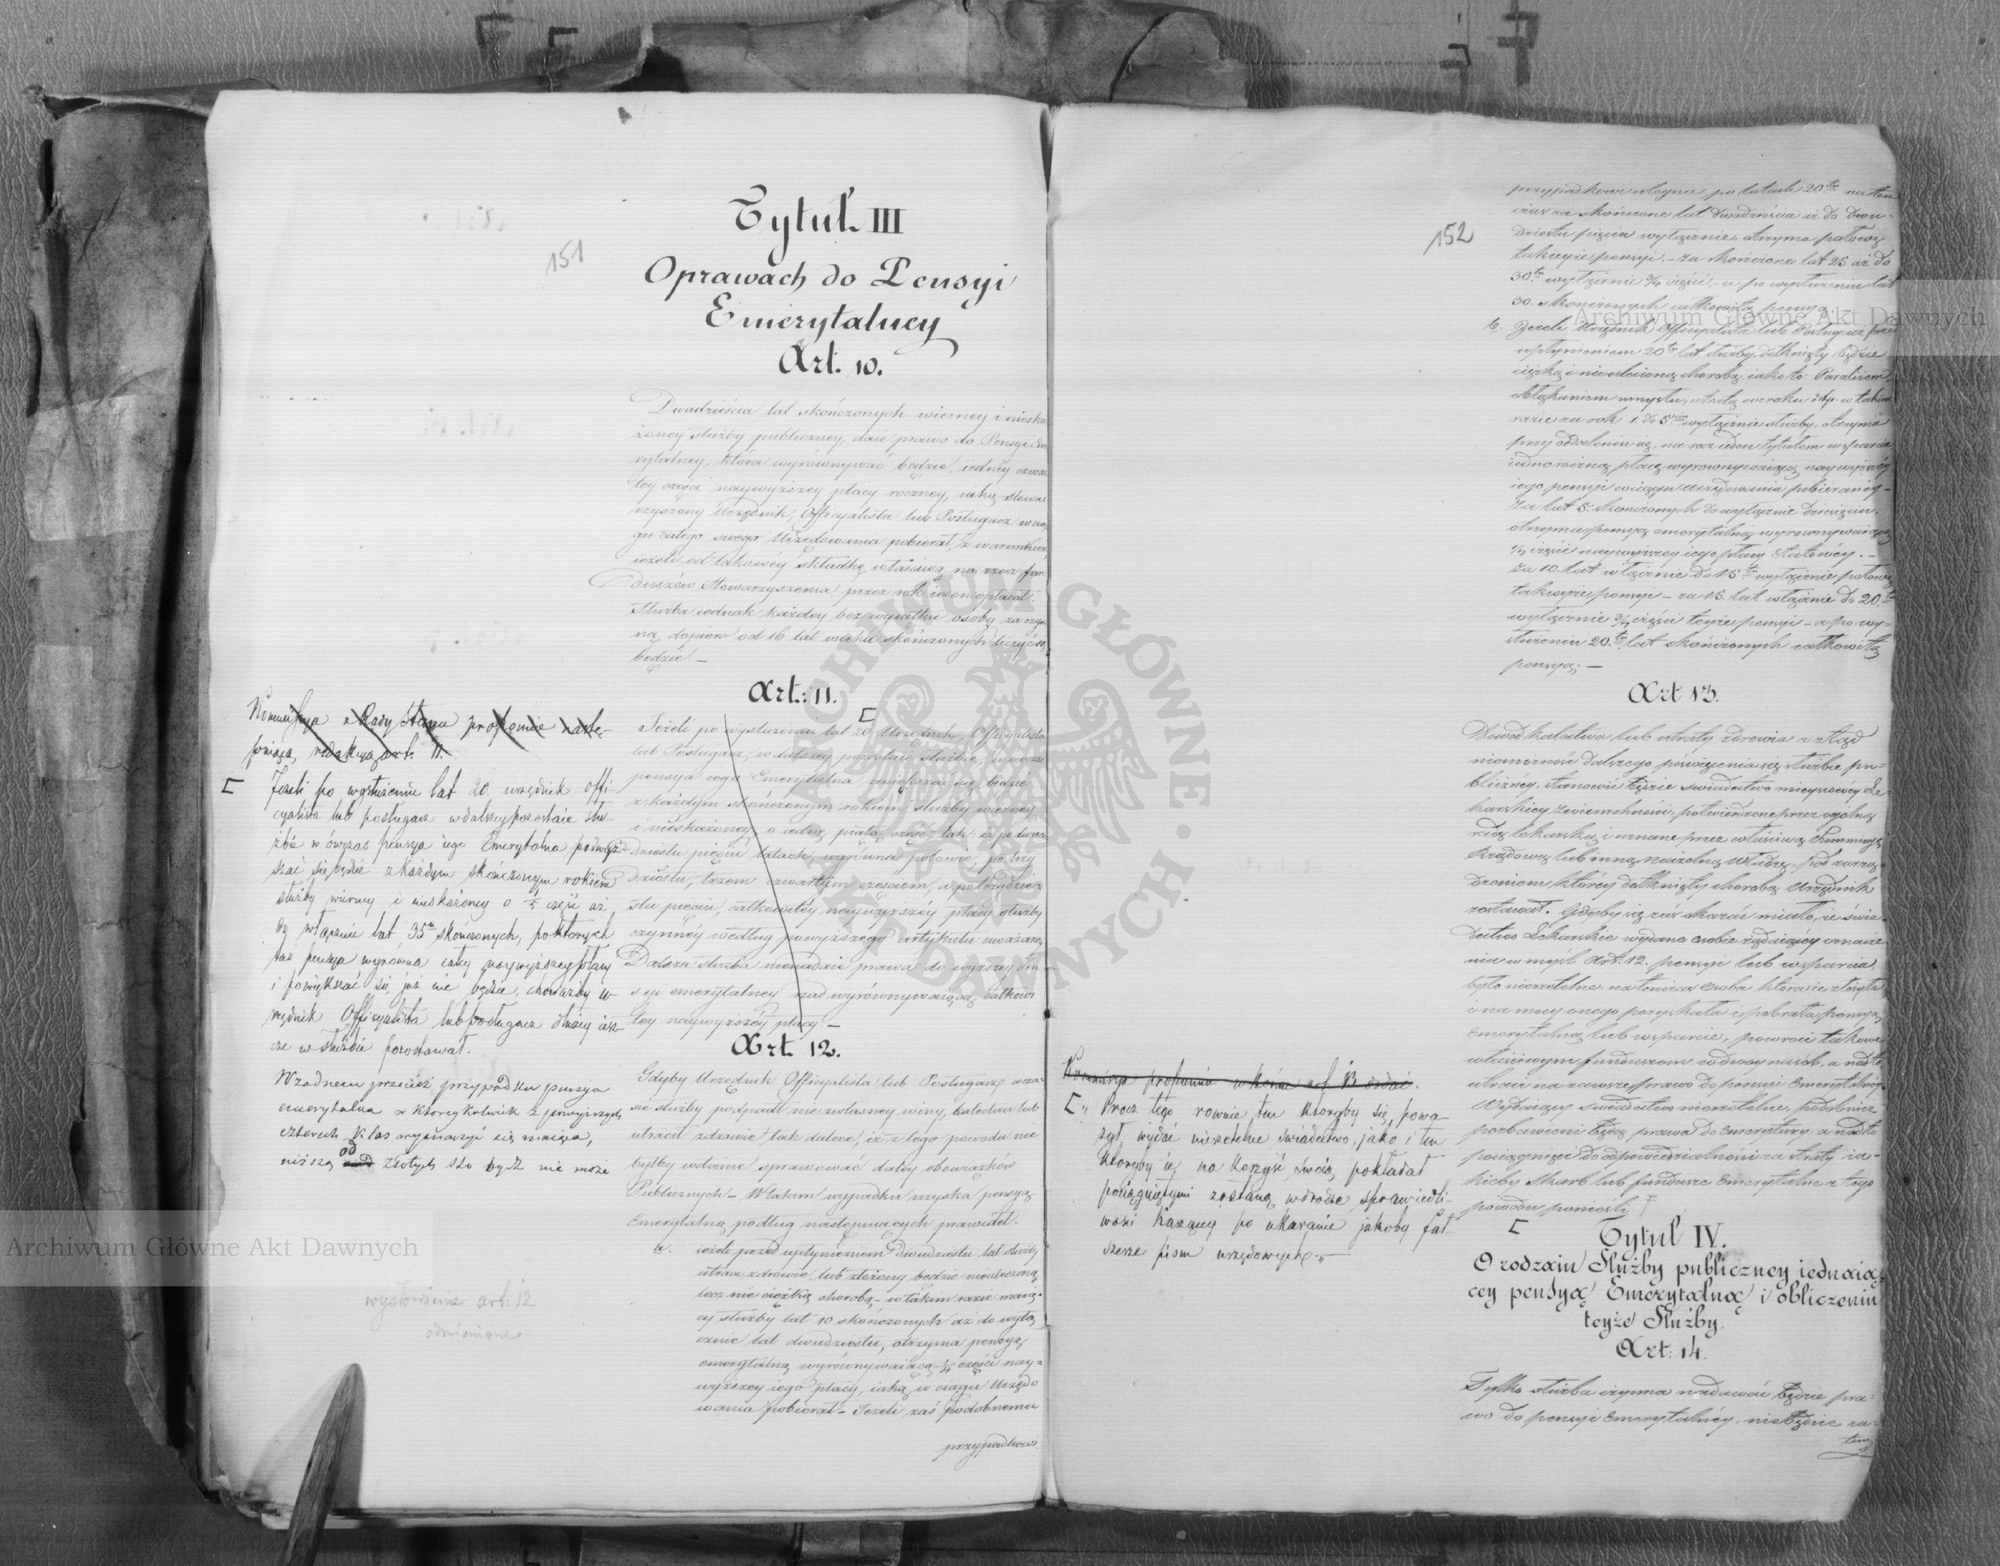 151
Tytuł III
O prawach do Pensyi
Emerytalney
Art. 10.
Dwadzieścia lat skończonych wierney i nieska-
żoney służby publiczney, daie prawo do Pensyi Eme-
rytalney, która wyrównywać będzie, iedney czwar-
tey części naywyższey płacy roczney, iaką stowa-
rzyszony Urzędnik, Officyalista lub Posługacz w cią-
gu całego swego Urzędowania pobierał, z warunkiem
ieżeli od takowéy składkę właściwą na rzecz fun-
duszów Stowarzyszenia przez rok ieden opłacał.
Służba iednak każdey bez wyiątku osoby, za czyn-
ną, dopiero od 16 lat wieku skończonych liczyć się
będzie. —
Art: 11.
Jeżeli po wysłużeniu lat 20 Urzędnik, Officyalista
lub Posługacz, w dalszey pozostaie służbie, wówczas
pensya iego Emerytalna zwiększać się będzie
z każdym skończonym rokiem służby wierney
i nieskażoney, o iedną piątą część, tak, iż po dwu-
dziestu pięciu latach, wyrówna połowie, po trzy-
dziestu, trzem czwartym częściom, a po trzydzie-
stu pięciu, całkowitéy naywyższéy płacy służby
czynnéy według powyższego artykułu uważaney
Dalsza służba nienadaie prawa do wyższey Pen-
syi emerytalney nad wyrównywaiącą całkowi-
tey naywyższéy płacy —
Art. 12.
Gdyby Urzędnik Officyalista lub Posługacz w cza-
sie służby podpadł nie z własney winy, kalectwu lub
utracił zdrowie tak dalece, iż z tego powodu nie
byłby w stanie sprawować daley obowiązków
Publicznych — W takim wypadku uzyska pensyą
Emerytalną podług następuiących prawideł.
a. ieżeli przed upłynieniem Dwudziestu lat służby
utraci zdrowie, lub złożony będzie nieuleczoną
lecz nie ciężką chorobą — w takim razie maią-
cy służby lat 10 skończonych aż do wyłą-
cznie lat dwudziestu, otrzyma pensyą
emerytalną wyrównywaiącą ¼ części nay-
wyższey iego płacy, iaką w ciągu Urzędo-
wania pobierał — Jeżeli zaś podobnemu
przypadkowi
Kommissya z Rady Stanu proponuie nastę-
puiącą redakcyą art. 11.
Jeżeli po wysłużeniu lat 20, urzędnik offi-
cyalista lub posługacz w dalszey pozostaie słu-
żbie w ówczas pensya iego Emerytalna podwyż-
szać się będzie z każdym skończonym rokiem
służby wierney i nieskażoney o ⅕ część aż
do włącznie lat 35 skończonych, po których
taż pensya wyrówna całey naywyższey płacy
i powiększać się już nie będzie, chociażby u-
rzędnik Officyalista lub posługacz dłużey iesz-
cze w służbie pozostawał.
W żadnem przecież przypadku pensya
emerytalna w którejkolwiek z powyższych
czterech klas wyznaczyć się maiąca,
niższą od złotych sto bydź nie może
wysłowienie art. 12
odmienione
152
przypadkowi ulegnie po latach 20tu na ten-
czas za skończone lat dwadzieścia aż do dwu-
dziestu pięciu wyłącznie, otrzyma połowę
takieyże pensyi. — za skończone lat 25 aż do
30tu wyłącznie ¾ części — a po wysłużeniu lat
30. skończonych całkowitą pensyą.
b. Jeżeli Urzędnik Officyalista lub Posługacz przed
upłynieniem 20tu lat służby, dotknięty będzie
ciężką i nieuleczoną chorobą iako to: Paraliżem,
obłąkaniem umysłu, utratą wzroku itp. w takim
razie za rok 1. do 5ciu wyłącznie służby, otrzyma
przy oddaleniu się, na raz ieden tytułem wsparcia
iednoroczną płacę wyrównywaiącą naywyższéy
iego pensyi w ciągu Urzędowania pobieranéy —
Za lat 5 skończonych do wyłącznie dziesięciu
otrzyma pensyą emerytalną wyrównywaiącą
¼ część naywyższey iego płacy etatowéy. —
Za 10. lat włącznie do 15tu wyłącznie połowę
takieyże pensyi — za 15 lat włącznie do 20tu
wyłącznie ¾ części teyże pensyi — a po wy-
służeniu 20.tu lat skończonych całkowitą
pensyą. —
Art 13.
Dowód kalectwa lub utraty zdrowia a ztąd
niemożność dalszego poświęcenia się służbie pu-
bliczney, stanowić będzie świadectwo mieyscowey Le-
karskiey Zwierzchności, potwierdzone przez ogólną
radę lekarską i uznane przez właściwą Kommissyą
Rządową lub inną naczelną Władzę, pod zarzą-
dzeniem któréy dotknięty chorobą Urzędnik
zostawał. Gdyby się zaś okazać miało, iż świa-
dectwo Lekarskie wydane osobie żądaiącéy uznawie-
nia w myśl Art. 12. pensyi lub wsparcia
było nierzetelne, natenczas osoba która ie złożyła
i na mocy onego pozyskała i pobrała pensyą
Emerytalną lub wsparcie, powróci takowe
właściwym funduszom w dwóynasób, a nadto
utraci na zawsze prawo do pensyi Emerytalnéy.
Wydaiący świadectwo nierzetelne, podobnież
pozbawieni będą prawa do Emerytury a nadto
pociągnięci do odpowiedzialności za straty ia-
kieby Skarb lub fundusze Emerytalne z tego
powodu poniosły
Kommissya proponuie w końcu art 13 dodać.
„ Prócz tego równie ten któryby się powa-
żył wydać nierzetelne świadectwo, jako i ten
któryby ie na korzyść swoią pokładał
pociągniętymi zostaną w drodze sprawiedli-
wości karzącey po ukaranie jakoby fał-
szerze pism urzędowych. „
Tytuł IV.
O rodzaiu Służby publiczney iednaią-
cey pensyą Emerytalną i obliczeniu
teyże Służby.
Art: 14.
Tylko służba czynna nadawać będzie pra-
wo do pensyi emerytalnéy, nie będzie za-
tem
Archiwum Główne Akt Dawnych
Archiwum Główne Akt Dawnych
ARCHIWUM GŁÓWNE · AKT DAWNYCH ·